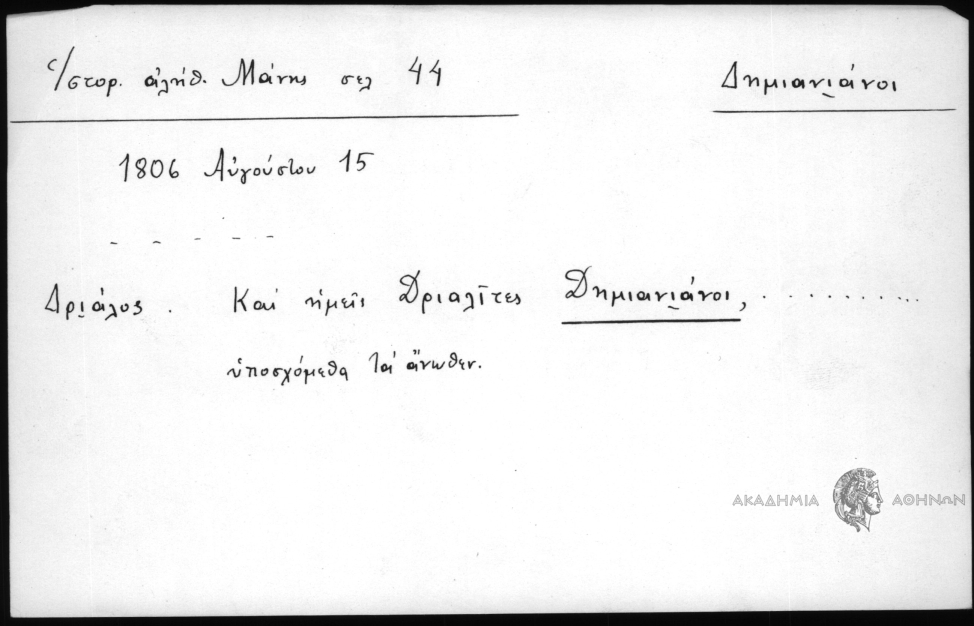 Ἱστορ. ἀλήθ. Μάνης σελ 44
Δημιανι̯άνοι
1806 Αὐγούστου 15
- - - - -
Δρι̯άλος. Καί ἡμεῖς Δριαλῖτες Δημιανι̯άνοι, . . . . . . . . . . .
ὑποσχόμεθα τά ἄνωθεν.
ΑΚΑΔΗΜΙΑ ΑΘΗΝΩΝ